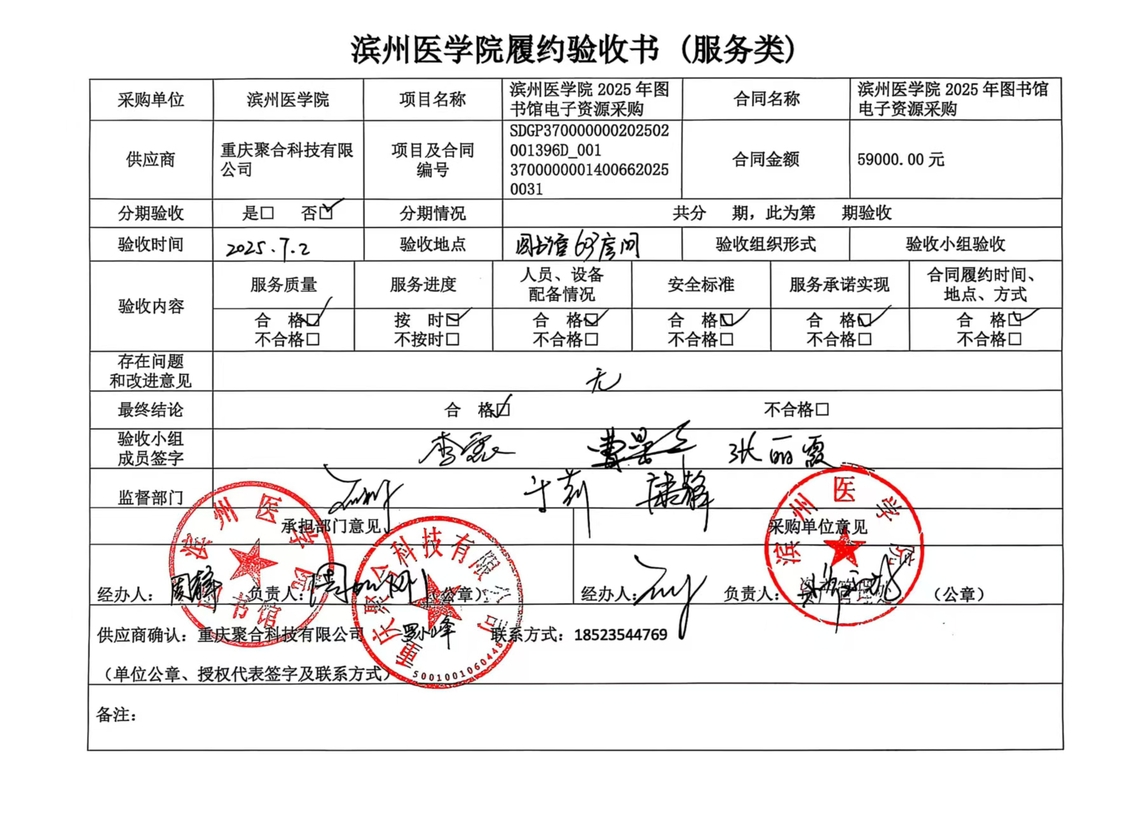 滨州医学院履约验收书（服务类）
采购单位 滨州医学院 项目名称 滨州医学院 2025 年图书馆电子资源采购 合同名称 滨州医学院 2025 年图书馆电子资源采购
供应商 重庆聚合科技有限公司 项目及合同编号 SDGP370000000202502001396D_001 37000000014006620250031 合同金额 59000.00 元
分期验收 是□ 否☑ 分期情况 共分 期，此为第 期验收
验收时间 2025.7.2 验收地点 图书馆 房间 验收组织形式 验收小组验收
验收内容 服务质量 服务进度 人员、设备配备情况 安全标准 服务承诺实现 合同履约时间、地点、方式
合 格☑ 按 时☑ 合 格☑ 合 格☑ 合 格☑ 合 格☑
不合格□ 不按时□ 不合格□ 不合格□ 不合格□ 不合格□
存在问题和改进意见 无
最终结论 合 格☑ 不合格□
验收小组成员签字 张丽霞
监督部门
承担部门意见 采购单位意见
经办人： 负责人： （公章） 经办人： 负责人： （公章）
供应商确认：重庆聚合科技有限公司 联系方式：18523544769
（单位公章、授权代表签字及联系方式）
备注：
滨州医学院
图书馆
重庆聚合科技有限公司
滨州医学院